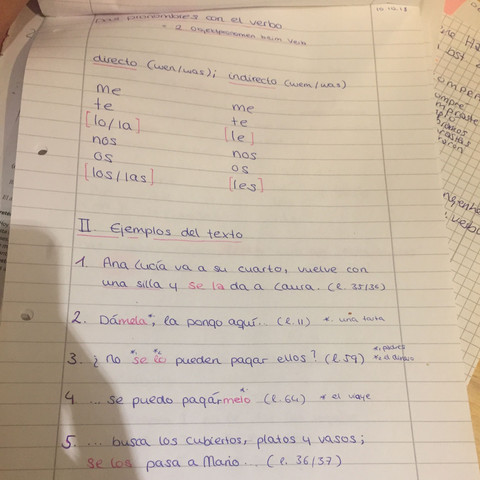 10.10.18
Dos pronombres con el verbo
= 2 Objektpronomen beim Verb
directo (wen/was); indirecto (wem/was)
me me
te te
[lo/la] [le]
nos nos
os os
[los/las] [les]
II. Ejemplos del texto
1. Ana Lucía va a su cuarto, vuelve con
una silla y se la da a Laura. (l. 35/36)
2. Dámela*, la pongo aquí... (l. 11) *. una
3. ¿no se lo pueden pagar ellos? (l. 59) *1 padres
*2 el dinero
4 ... se puedo pagármelo (l. 64) * el viaje
5. ... busca los cubiertos, platos y vasos;
se los pasa a Mario... (l. 36/37)